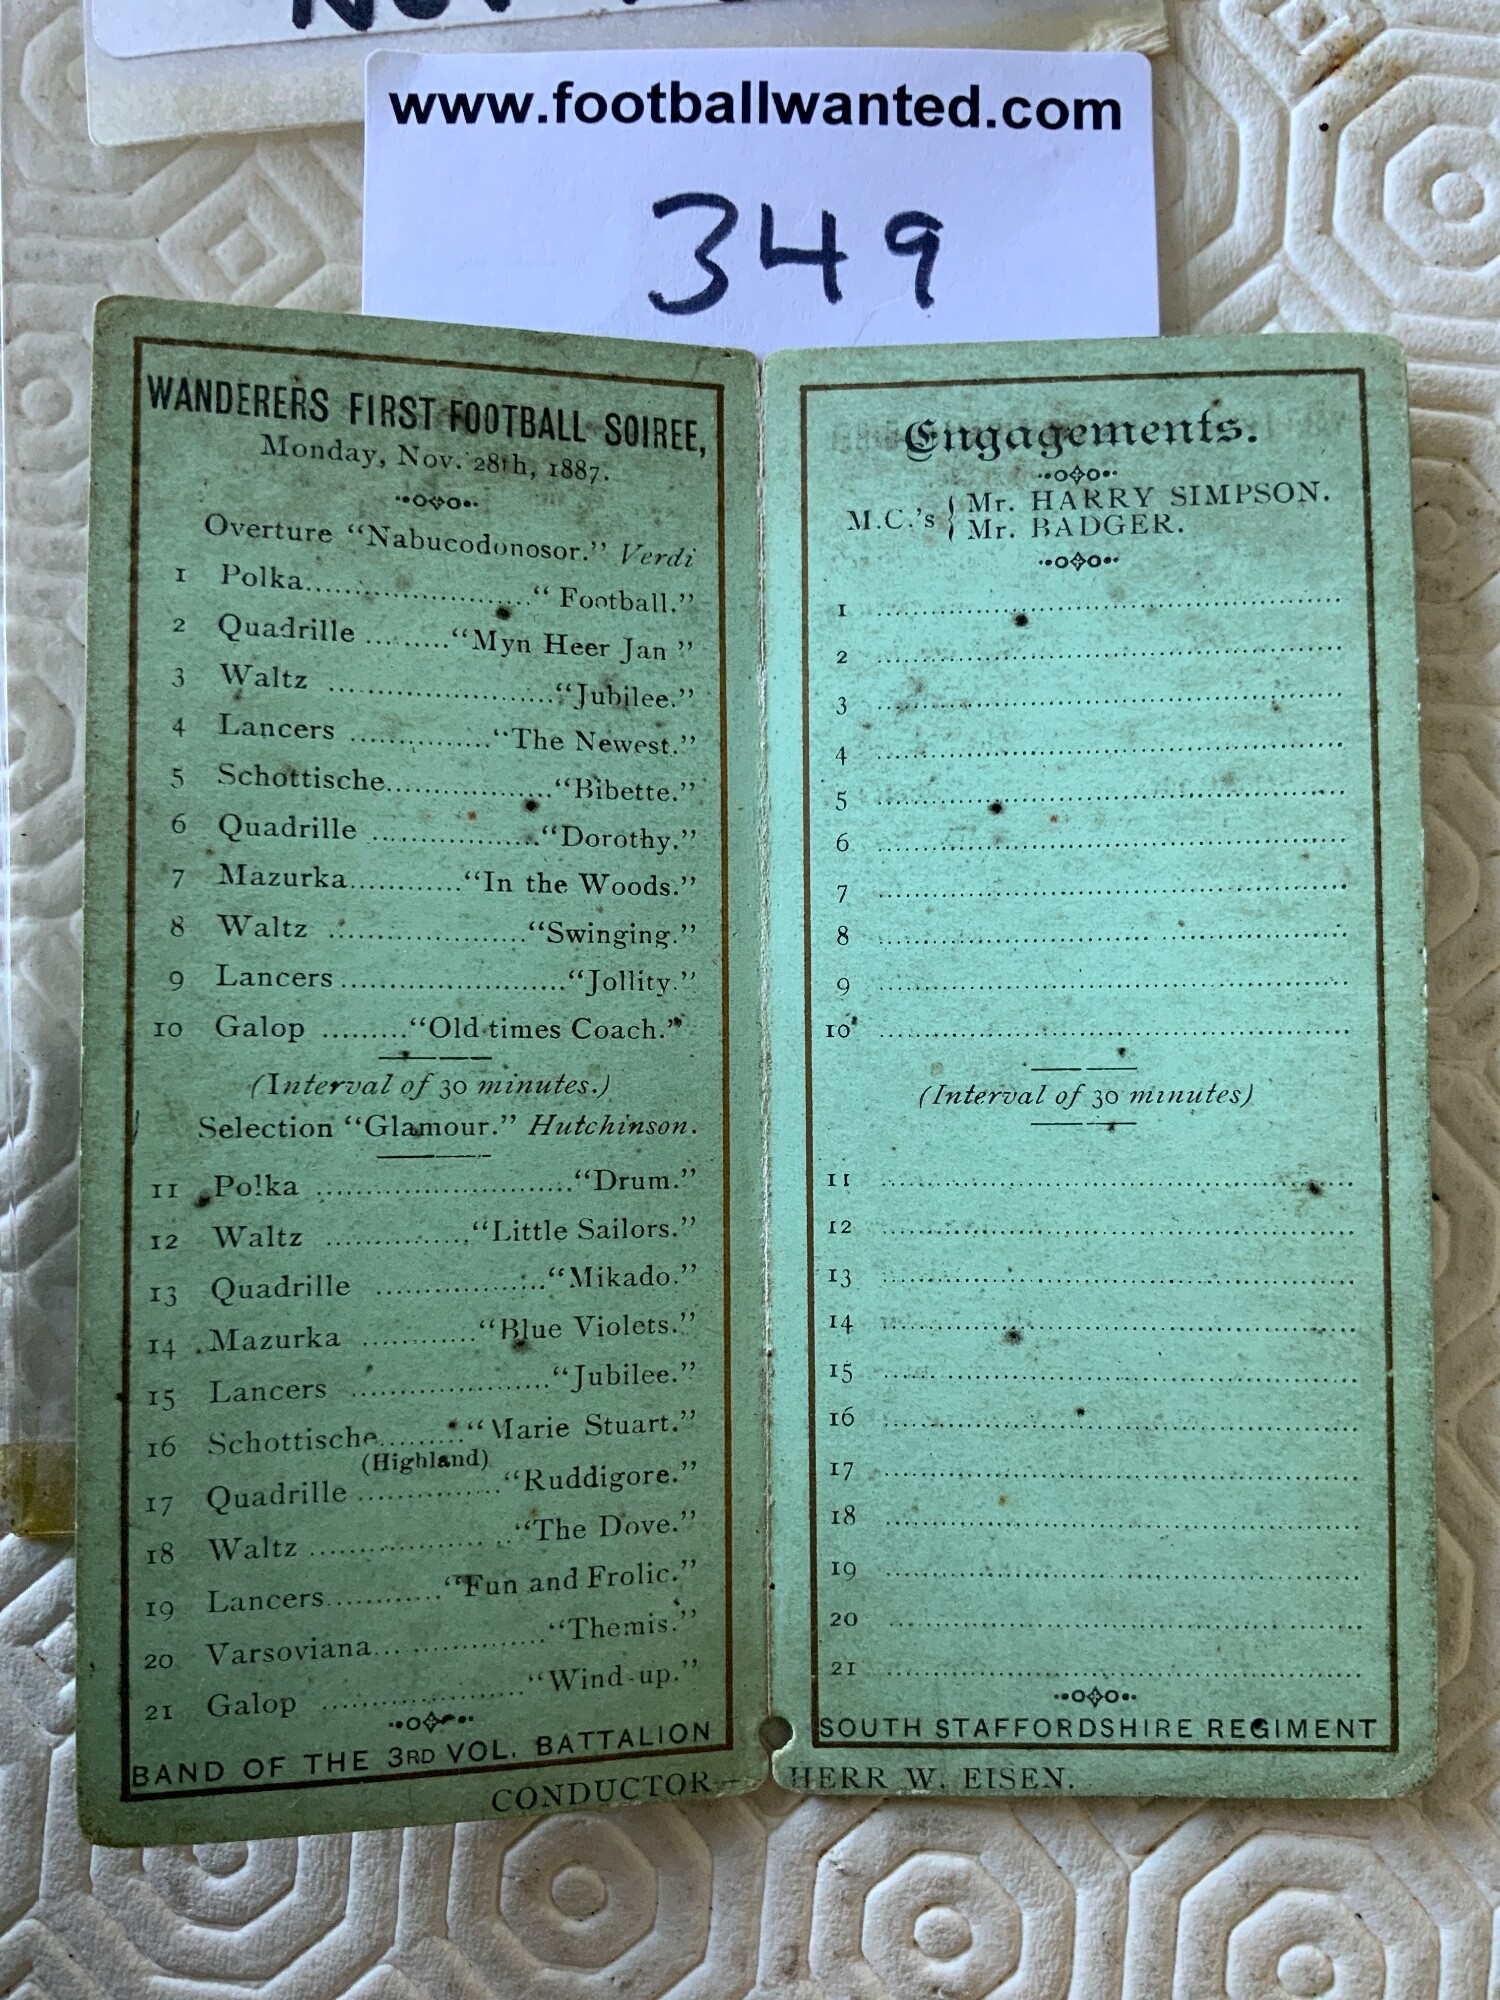 www.footballwanted.com
349
WANDERERS FIRST FOOTBALL SOIREE,
Monday, Nov. 28th, 1887.
Overture "Nabucodonosor." Verdi
1 Polka..............................." Football."
2 Quadrille ........."Myn Heer Jan "
3 Waltz ........................"Jubilee."
4 Lancers ..............."The Newest."
5 Schottische.................."Bibette."
6 Quadrille .................."Dorothy."
7 Mazurka............"In the Woods."
8 Waltz ......................"Swinging."
9 Lancers........................"Jollity."
10 Galop ........."Old times Coach."
(Interval of 30 minutes.)
Selection "Glamour." Hutchinson.
11 Polka ............................"Drum."
12 Waltz ..............."Little Sailors."
13 Quadrille .................."Mikado."
14 Mazurka ............"Blue Violets."
15 Lancers ......................"Jubilee."
16 Schottische........."Marie Stuart."
(Highland)
17 Quadrille ..............."Ruddigore."
18 Waltz ......................"The Dove."
19 Lancers............"Fun and Frolic."
20 Varsoviana.................."Themis."
21 Galop ......................"Wind-up."
BAND OF THE 3RD VOL. BATTALION
CONDUCTOR—
Engagements.
M.C.'s { Mr. HARRY SIMPSON.
Mr. BADGER.
1 ..................................................
2 ..................................................
3 ..................................................
4 ..................................................
5 ..................................................
6 ..................................................
7 ..................................................
8 ..................................................
9 ..................................................
10 ..................................................
(Interval of 30 minutes)
11 ..................................................
12 ..................................................
13 ..................................................
14 ..................................................
15 ..................................................
16 ..................................................
17 ..................................................
18 ..................................................
19 ..................................................
20 ..................................................
21 ..................................................
SOUTH STAFFORDSHIRE REGIMENT
HERR W. EISEN.